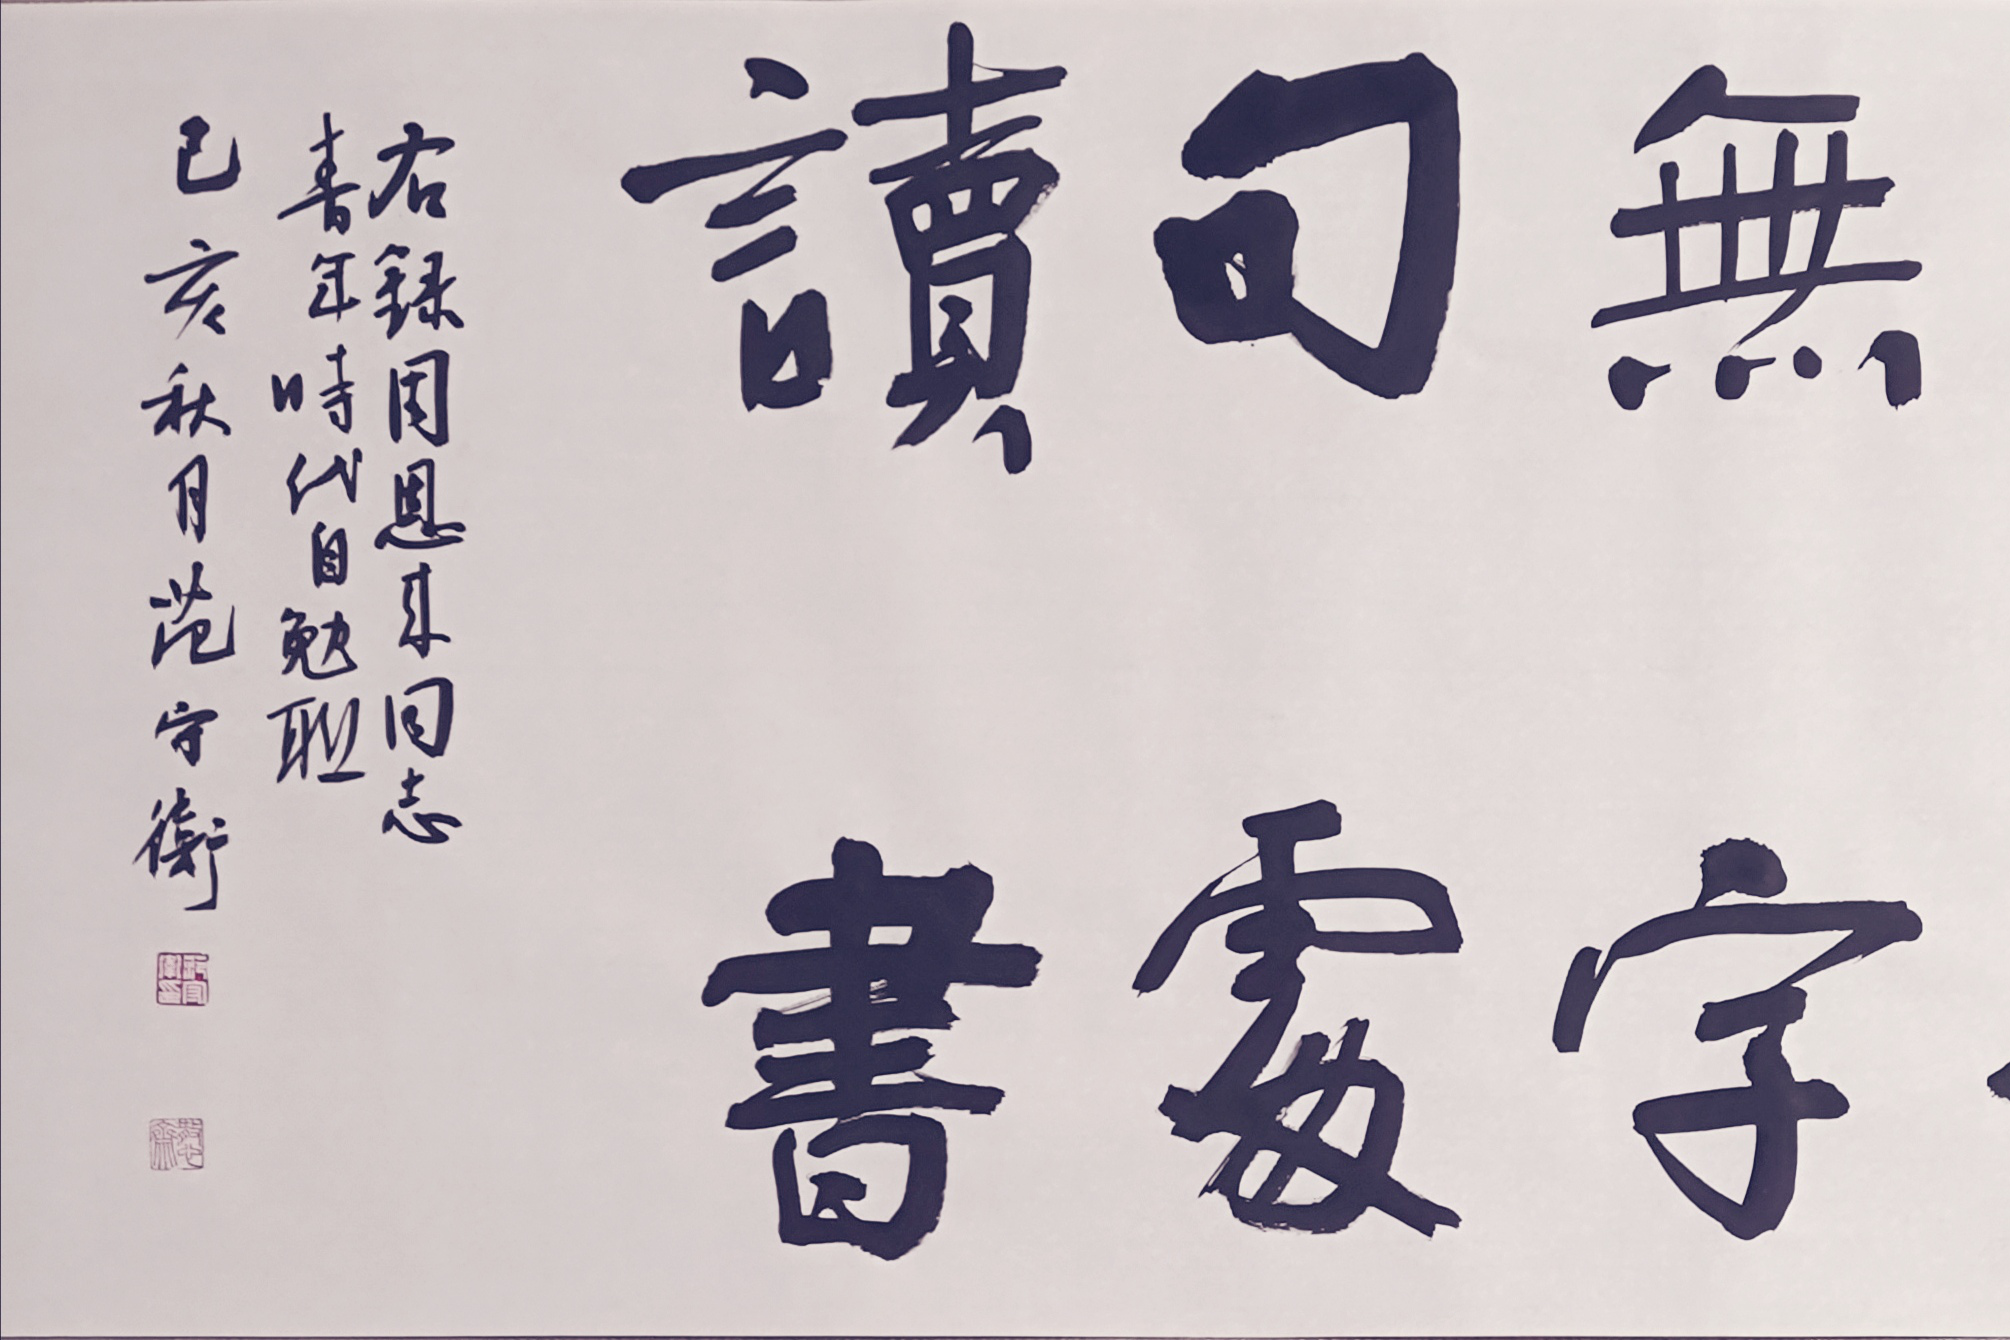 無字
句處
讀書
右録周恩来同志
青年時代自勉联
己亥秋月范守衛